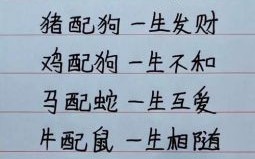 猪配狗 一生发财
鸡配狗 一生不和
马配蛇 一生互爱
牛配鼠 一生相随